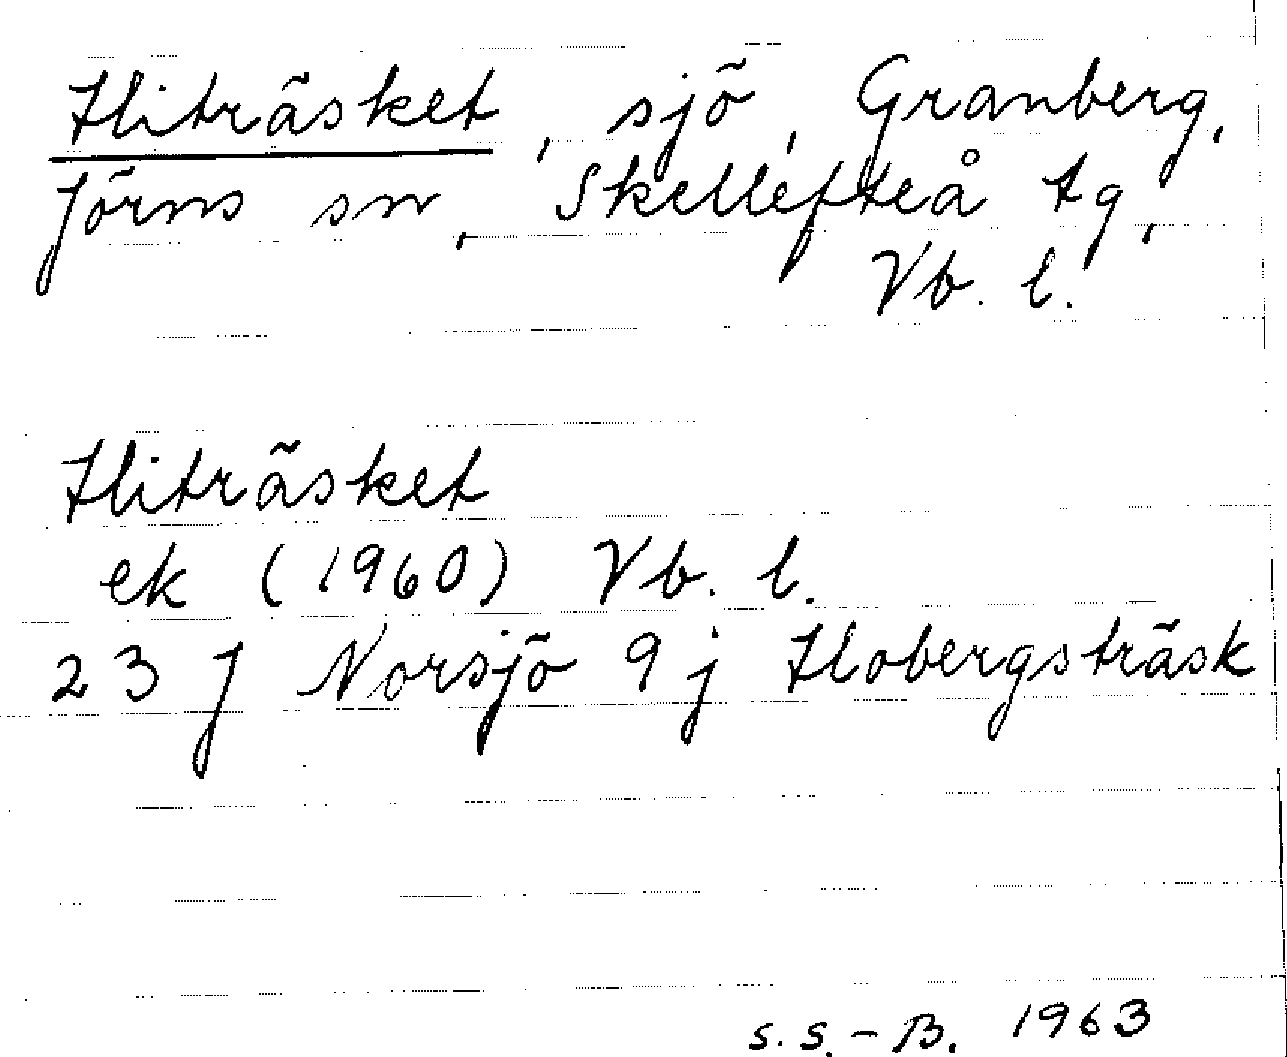 Hiträsket, sjö, Granberg,
Jörns sn, Skellefteå tg,
Vb. l.
Hiträsket
ek (1960) Vb. l.
23 J Norsjö 9 j Hobergsträsk
S. S. - B. 1963